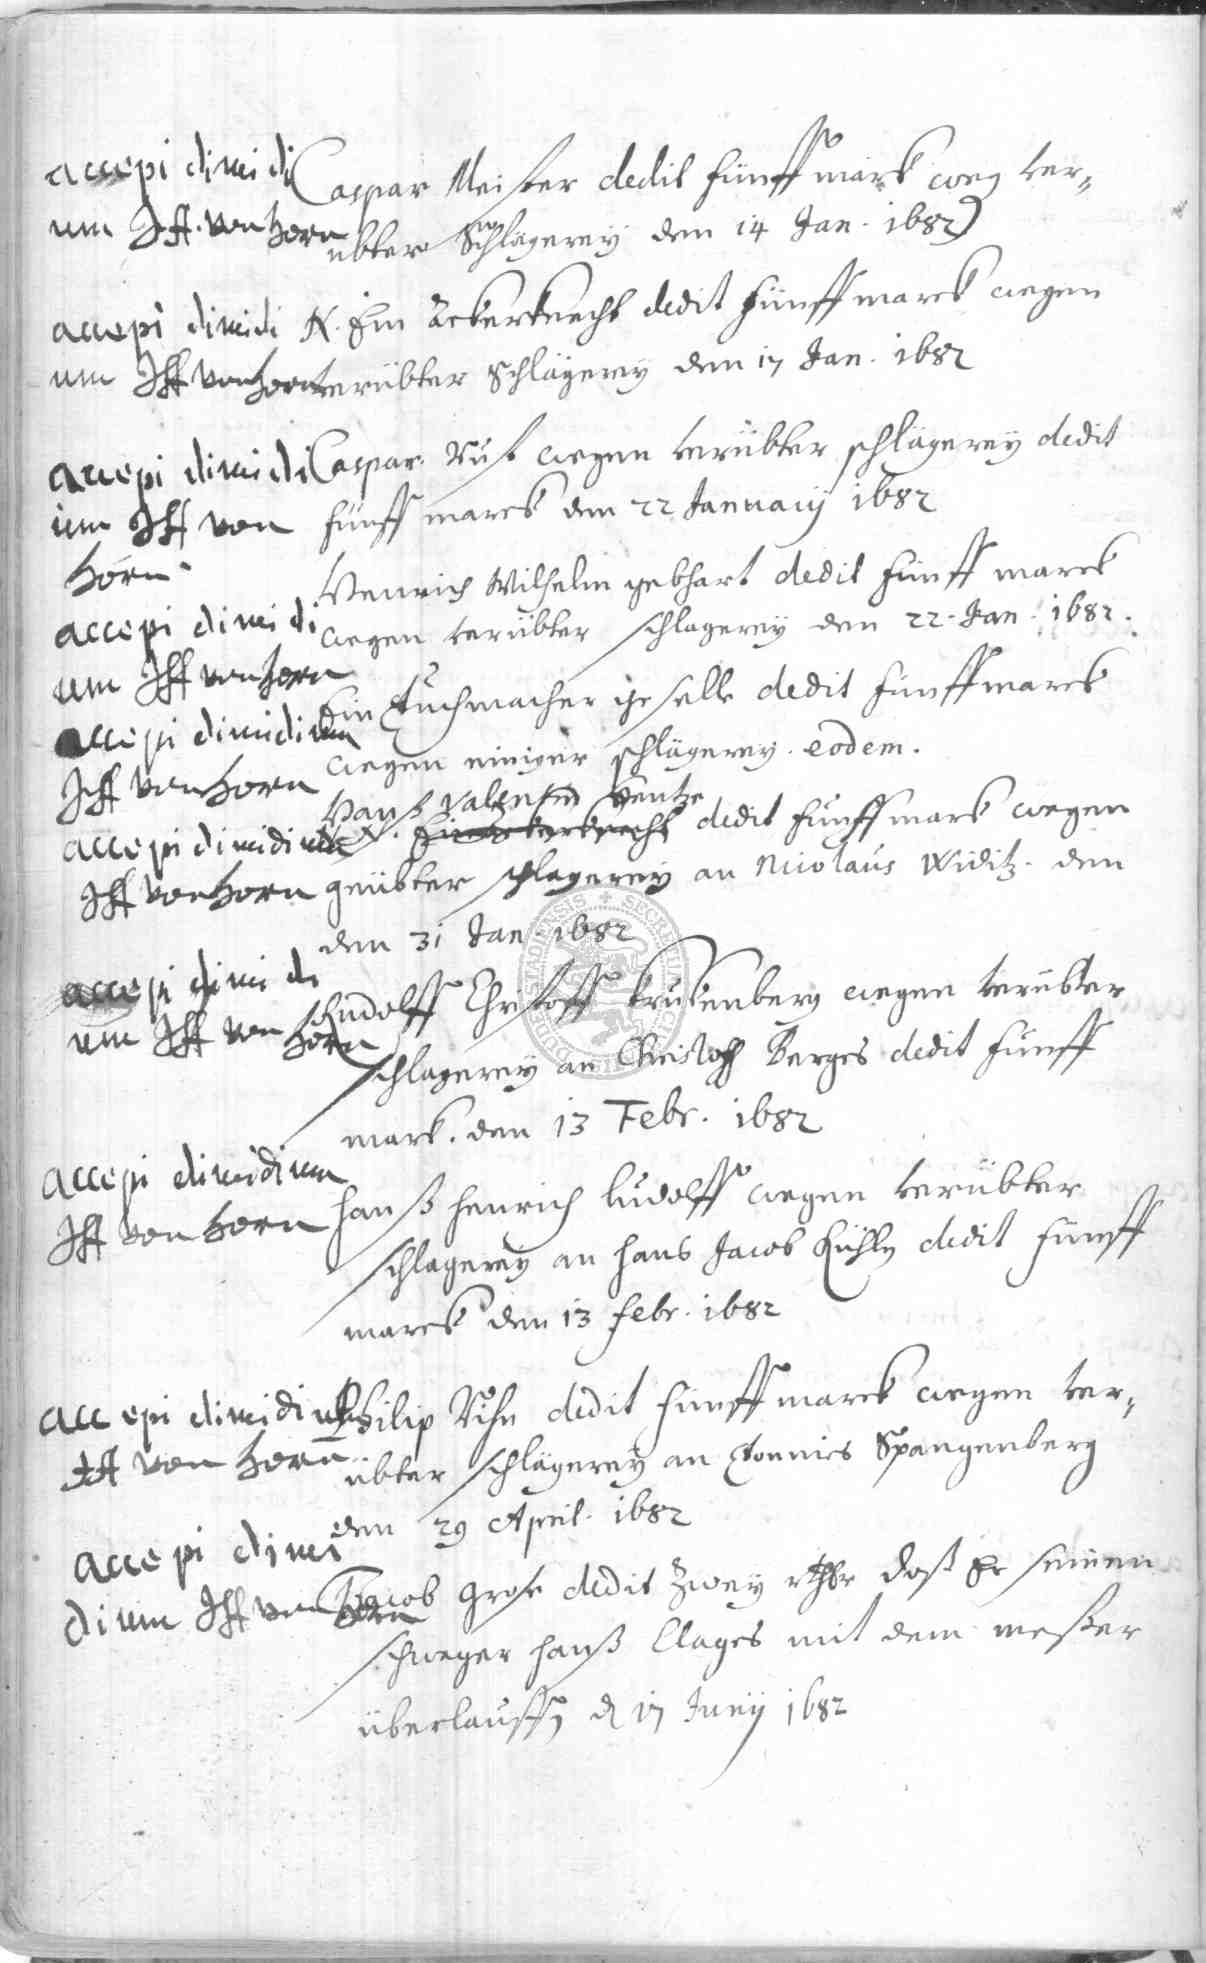 accepi dimidi
um JH. von Horn
Caspar Meister dedit fünff marck weg ver-
übter Schlägerey den 14 Jan. 1682
accepi dimidi
um JH von Horn
N. Ein Ackerknecht dedit fünff marck wegen
verübter Schlägerey den 17 Jan. 1682
accepi dimidi
um JH von
Horn
Caspar Rust wegen verübter schlägerey dedit
fünff marck den 22 January 1682
accepi dimidi
um JH von Horn
Henrich Wilhelm gebhart dedit fünff marck
wegen verübter schlagereÿ den 22. Jan. 1682.
accepi dimidium
JH von Horn
Ein Tuchmacher geselle dedit fünff marck
wegen einiger schlägerey. eodem.
accepi dimidium
JH von Horn
Hanß Valentin Hentze
N. Ein Ackerknecht dedit fünff mark wegen
geübter schlagereÿ an Nicolaus Widitz. den
den 31 Jan. 1682
accepi dimidi
um JH von Horn
Rudolff Christoff Krukenberg wegen verübter
schlagereÿ an Christoff Berges dedit fünff
mark. den 13 Febr. 1682
accepi dimidium
JH von Horn
hanß henrich ludolff wegen verübter
schlagereÿ an hans Jacob Kühln dedit fünff
marck den 13 febr. 1682
accepi dimidium
JH von Horn
Philip dedit fünff marck wegen ver-
übter schlägerey an Tonnies Spangenberg
den 29 April. 1682
accepi dimi
dium JH von Horn
Jacob Grose dedit Zwey rthlr daß Er seinen
schweger hanß Clages mit dem meßer
überlauffen d 17 Junij 1682
DUDERSTADIENSIS SECRETI